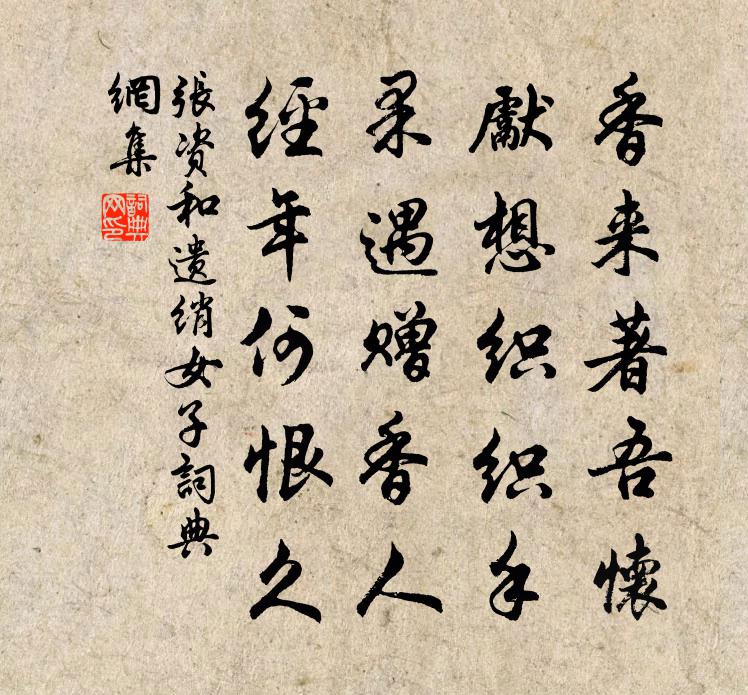 香来著吾懷
獻想织织手
果遇赠香人
經年何恨久
張资和遗绡女子詞典
網集
詞典
网印